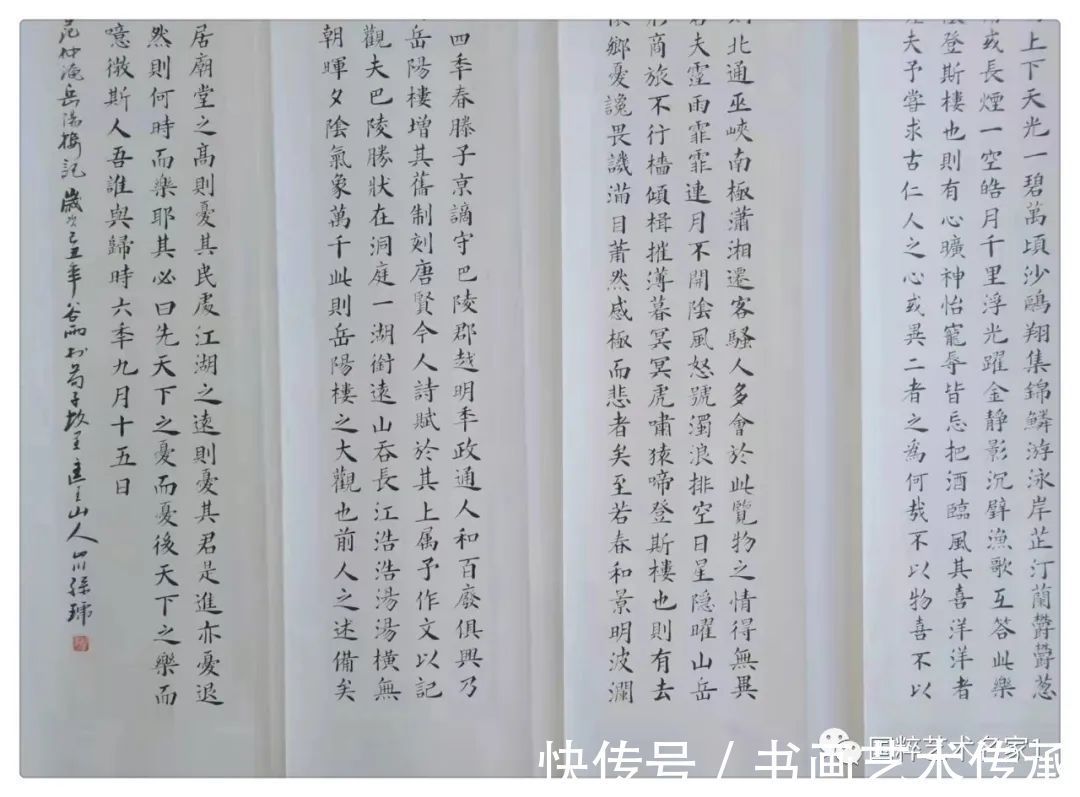 四秊春滕子京謫守巴陵郡越明秊政通人和百廢俱興乃
岳陽樓增其舊制刻唐賢今人詩賦於其上属予作文以記
觀夫巴陵勝狀在洞庭一湖銜遠山吞長江浩浩湯湯橫無
朝暉夕陰氣象萬千此則岳陽樓之大觀也前人之述備矣
則北通巫峽南極瀟湘遷客騷人多會於此覽物之情得無異
若夫霪雨霏霏連月不開陰風怒號濁浪排空日星隱曜山岳
形商旅不行檣傾楫摧薄暮冥冥虎嘯猿啼登斯樓也則有去
懷鄉憂讒畏譏滿目蕭然感極而悲者矣至若春和景明波瀾
上下天光一碧萬頃沙鷗翔集錦鱗游泳岸芷汀蘭鬱鬱蔥
而或長煙一空皓月千里浮光躍金靜影沉璧漁歌互答此樂
登斯樓也則有心曠神怡寵辱皆忘把酒臨風其喜洋洋者
夫予嘗求古仁人之心或異二者之為何哉不以物喜不以
居廟堂之高則憂其民處江湖之遠則憂其君是進亦憂退
然則何時而樂耶其必曰先天下之憂而憂後天下之樂而
噫微斯人吾誰與歸時六秊九月十五日
范仲淹岳陽樓記 歲次己丑年谷雨於 山人 孫
国粹艺术名家1
快传号 / 书画艺术传承